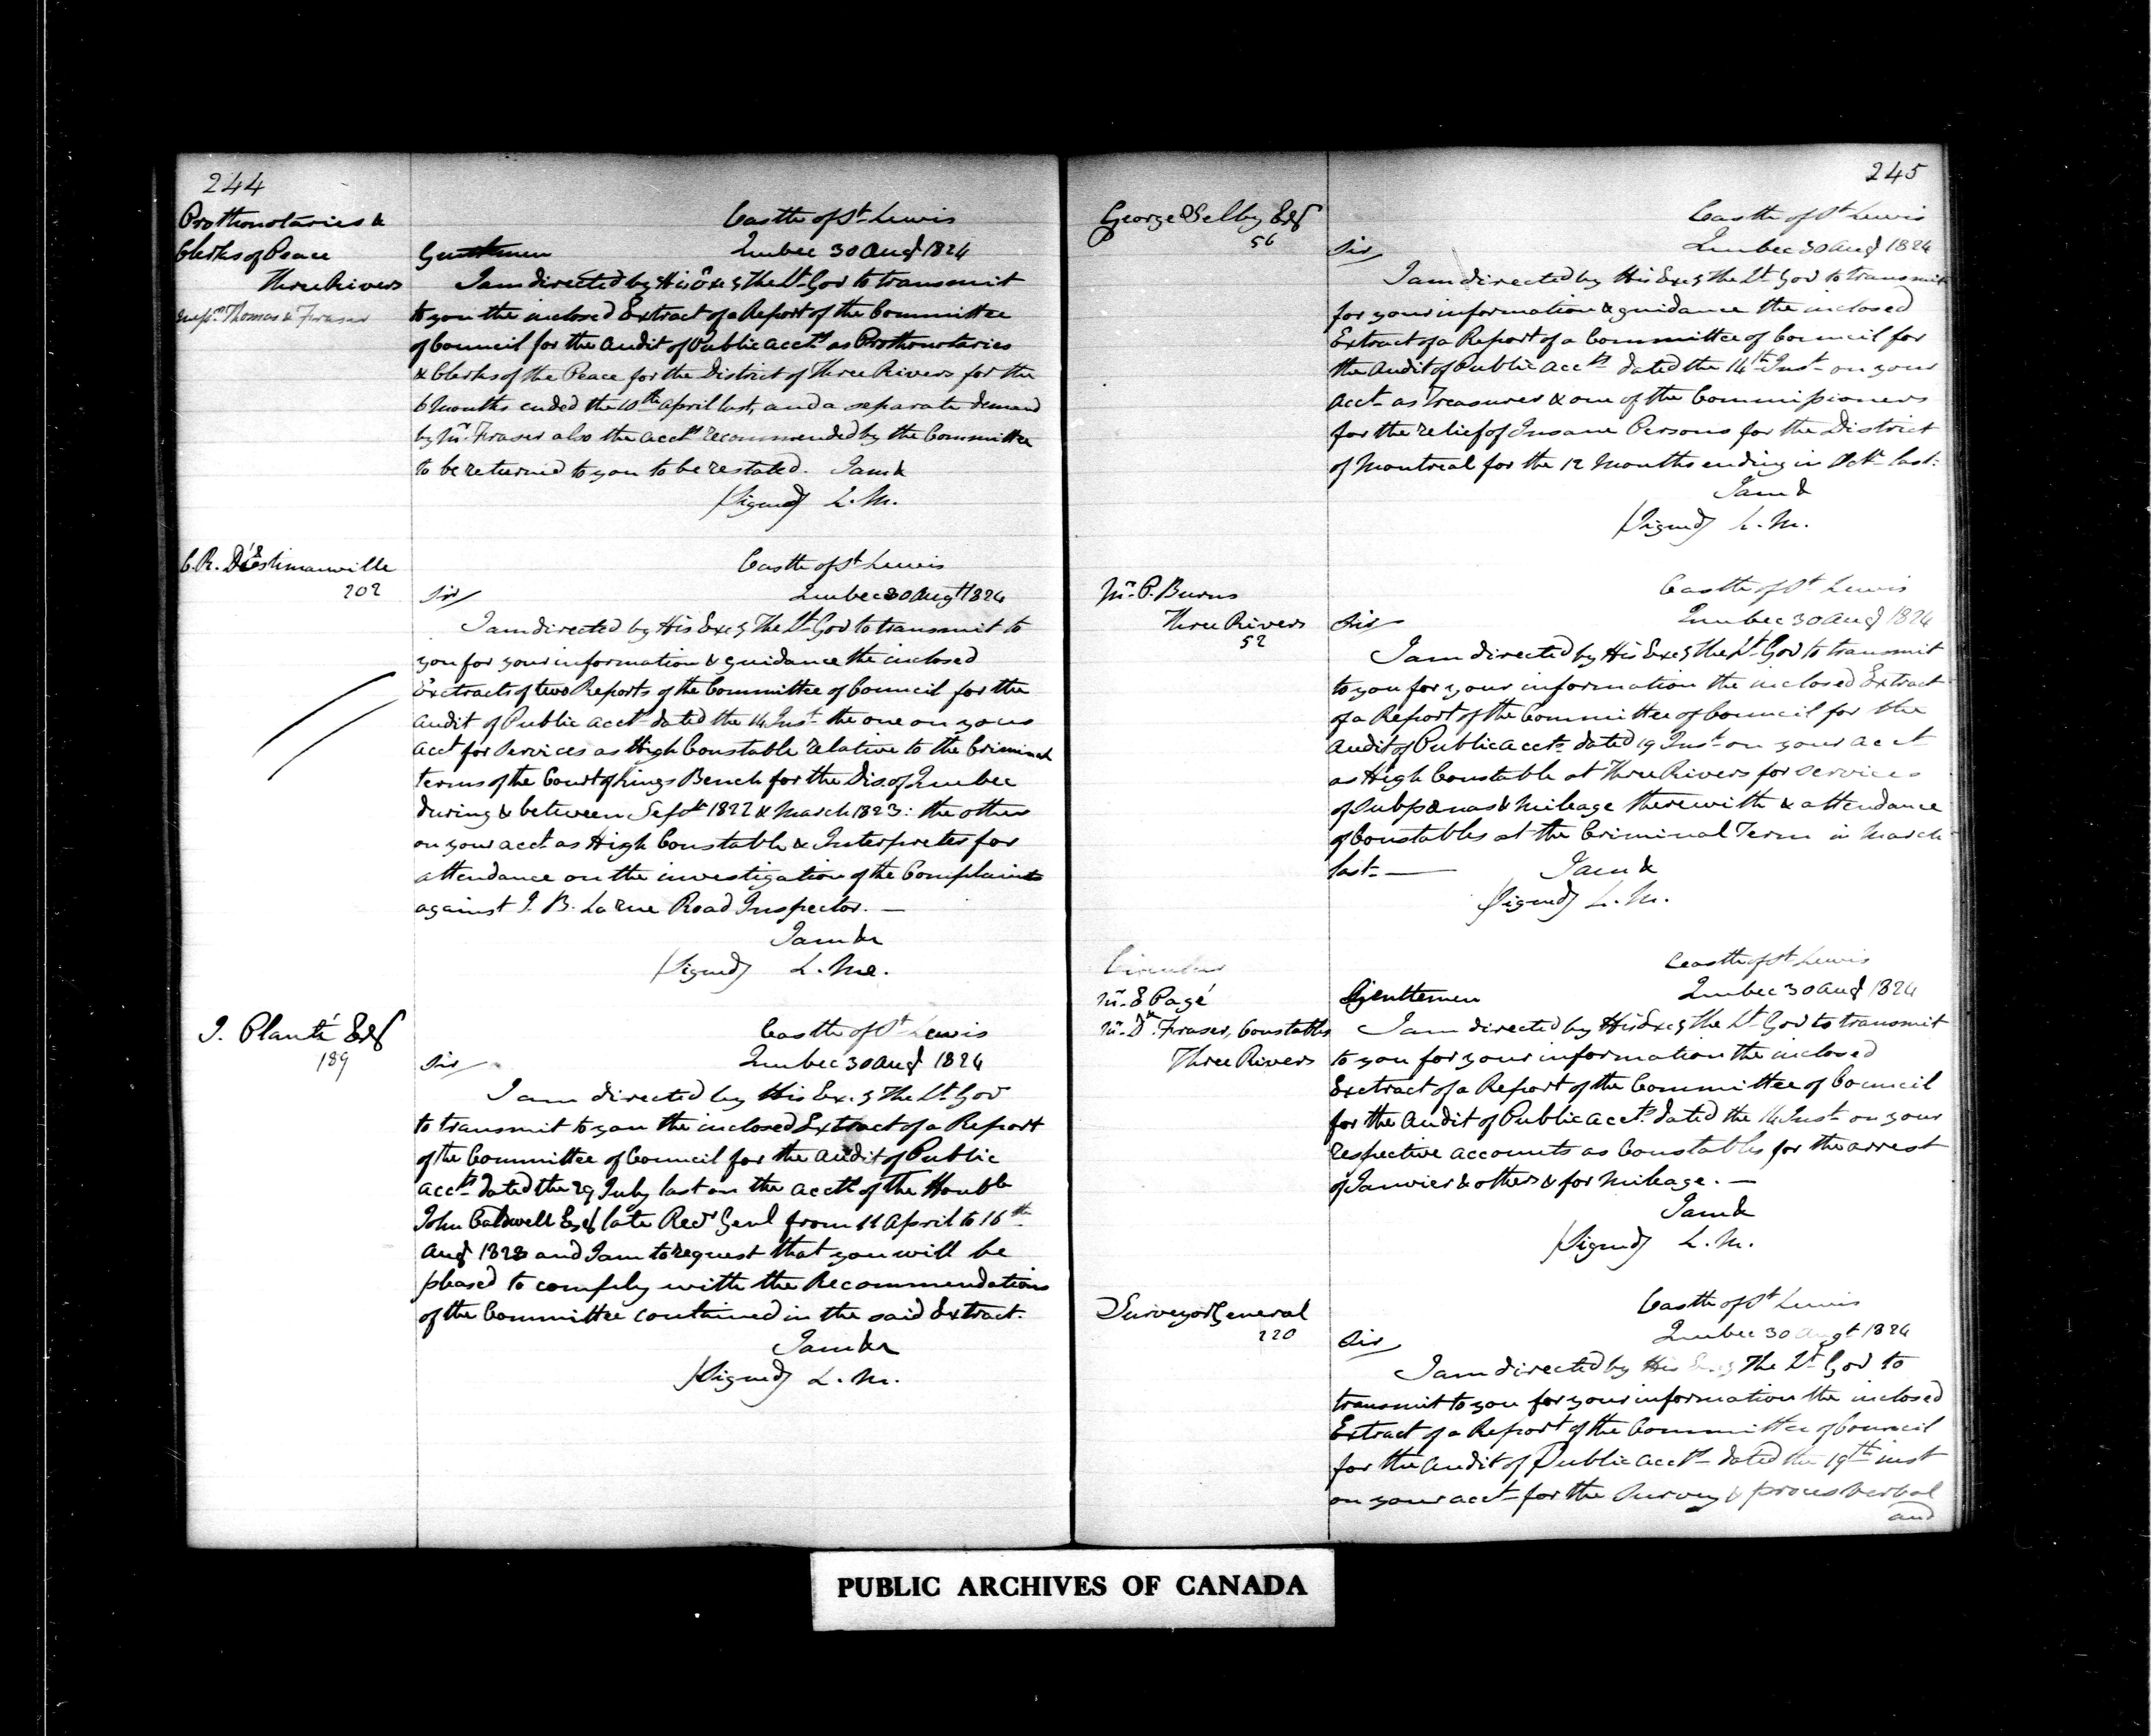 244
Prothonotaries &
Clerks of Peace
Three Rivers
Messrs Thomas & Fraser
Castle of St Lewis
Quebec 30 Augt 1824
Gentlemen
I am directed by His Excy the Lt Gov to transmit
to you the inclosed Extract of a Report of the Committee
of Council for the Audit of Public Accts as Prothonotaries
& Clerks of the Peace for the District of Three Rivers for the
6 Months ended the 10th April last, and a separate demand
by Mr Fraser also the Accts recommended by the Committee
to be returned to you to be restated. I am &
(Signed) L. M.
C. R. D'Estimauville
202
Castle of St Lewis
Quebec 30 Augt 1824
Sir
I am directed by His Excy The Lt Gov to transmit to
you for your information & guidance the inclosed
Exctracts of two Reports of the Committee of Council for the
Audit of Public Accts dated the 14 Inst the one on your
Acct for Services as High Constable relative to the Criminal
terms of the Court of Kings Bench for the Dis. of Quebec
during & between Septr 1822 & March 1823: the other
on your acct as High Constable & Interpreter for
attendance on the investigation of the Complaints
against J. B. Larue Road Inspector. —
I am &c
(Signed) L. M.
J. Planté Esq
189
Castle of St Lewis
Quebec 30 Augt 1824
Sir
I am directed by His Excy The Lt Gov
to transmit to you the inclosed Extract of a Report
of the Committee of Council for the Audit of Public
Accts dated the 29 July last on the Accts of the Honble
John Caldwell Esq late Recr Genl from 11 April to 16th
Augt 1823 and I am to request that you will be
pleased to comply with the Recommendations
of the Committee contained in the said Extract.
I am &c
(Signed) L. M.
245
George Selby Esq
56
Castle of St Lewis
Quebec 30 Augt 1824
Sir
I am directed by His Excy the Lt Gov to transmit
for your information & guidance the inclosed
Extract of a Report of a Committee of Council for
the Audit of Public Accts dated the 14th Inst on your
Acct as Treasurer & one of the Commissioners
for the relief of Insane Persons for the District
of Montreal for the 12 Months ending in Octr last.
I am &
(Signed) L. M.
Mr P. Burns
Three Rivers
52
Castle of St Lewis
Quebec 30 Augt 1824
Sir
I am directed by His Excy the Lt Gov to transmit
to you for your information the inclosed Extract
of a Report of the Committee of Council for the
Audit of Public Accts dated 19 Inst on your acct
as High Constable at Three Rivers for services
of Subpœnas & Mileage therewith & attendance
of Constables at the Criminal Term in March
last. —
I am &
(Signed) L. M.
Circular
Mr E Pagé
Mr Fraser, Constables
Three Rivers
Castle of St Lewis
Quebec 30 Augt 1824
Gentlemen
I am directed by His Excy the Lt Gov to transmit
to you for your information the inclosed
Exctract of a Report of the Committee of Council
for the Audit of Public Accts dated the 14 Inst on your
respective accounts as Constables for the arrest
of Janvier & others & for Mileage. —
I am &
(Signed) L. M.
Surveyor General
220
Castle of St Lewis
Quebec 30 Augt 1824
Sir
I am directed by His Excy The Lt Gov to
transmit to you for your information the inclosed
Extract of a Report of the Committee of Council
for the Audit of Public Accts dated the 19th inst
on your acct for the Survey & proces verbal
and
PUBLIC ARCHIVES OF CANADA